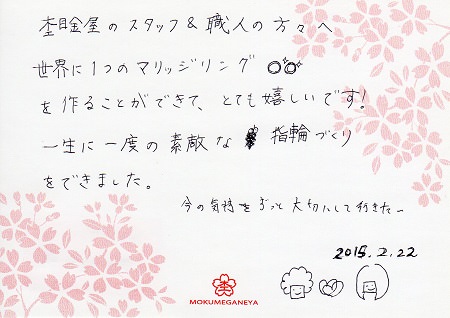 杢目金屋のスタッフ&職人の方々へ
世界に1つのマリッジリング
を作ることができて、とても嬉しいです!
一生に一度の素敵な 指輪づくり
をできました。
今の気持をずっと大切にして行きたい
2015.2.22
MOKUMEGANEYA